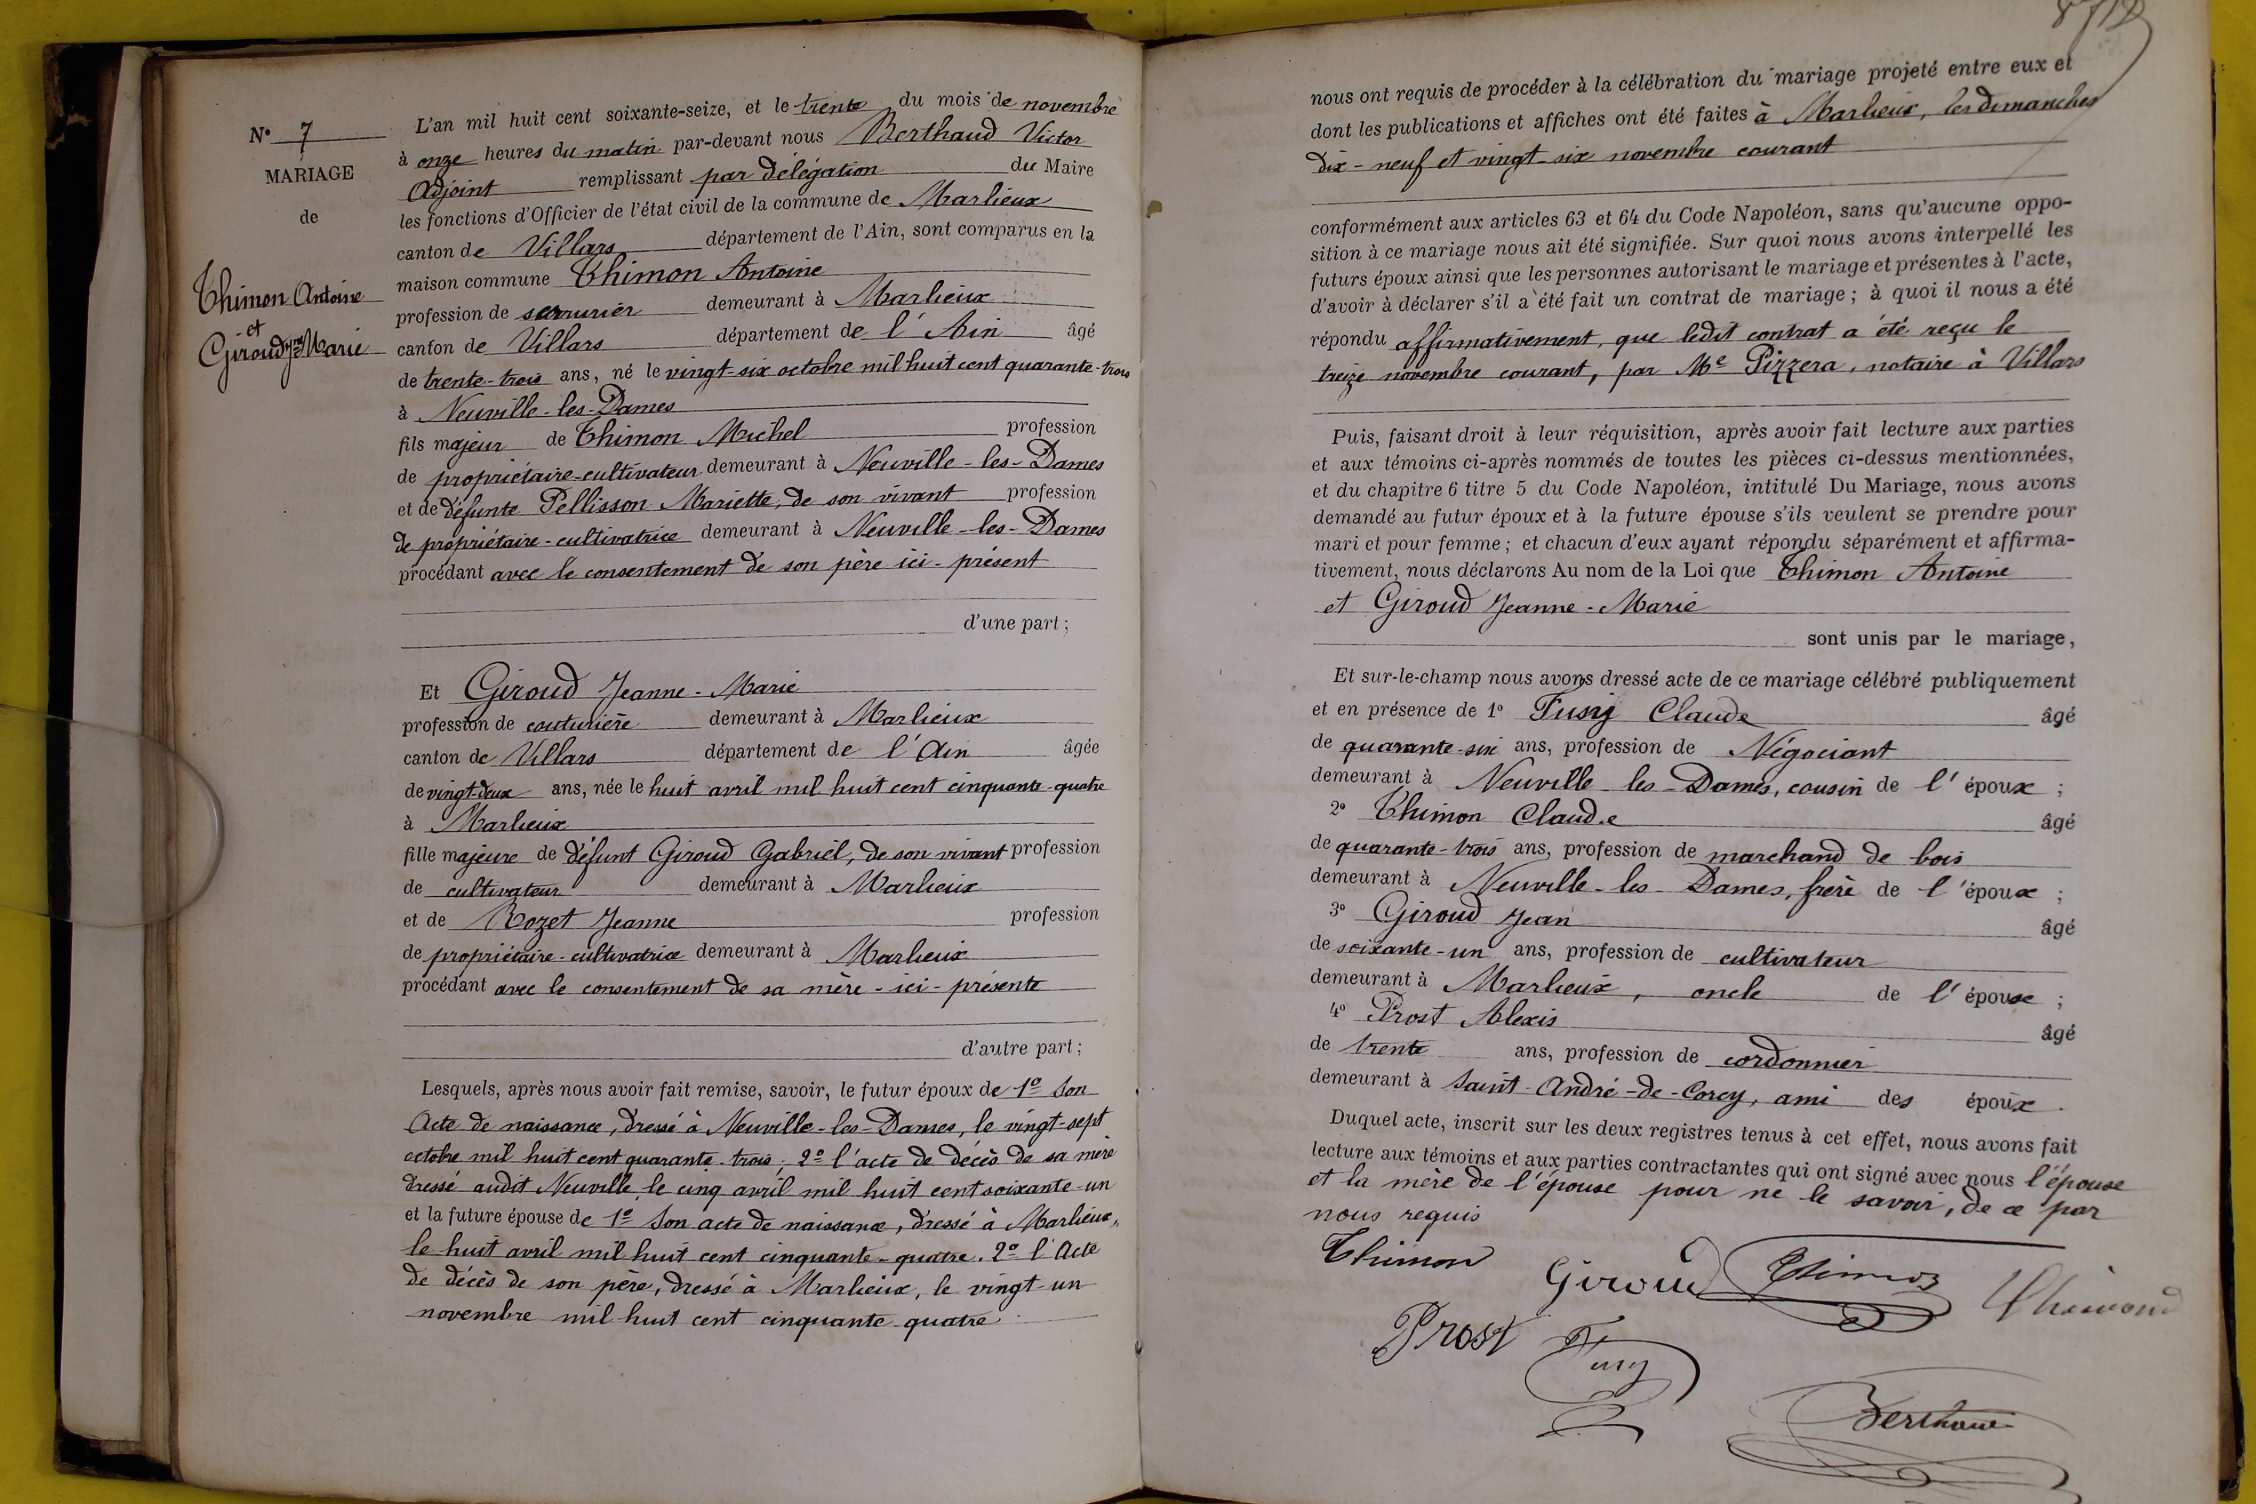 N° 7
MARIAGE
de
Thimon Antoine
et
Giroud Jne Marie
L'an mil huit cent soixante-seize, et le trente du mois de novembre
à onze heures du matin par-devant nous Berthaud Victor
Adjoint remplissant par délégation du Maire
les fonctions d'Officier de l'état civil de la commune de Marlieux
canton de Villars département de l'Ain, sont comparus en la
maison commune Thimon Antoine
profession de serrurier demeurant à Marlieux
canton de Villars département de l'Ain âgé
de trente-trois ans, né le vingt-six octobre mil huit cent quarante-trois
à Neuville-les-Dames
fils majeur de Thimon Michel profession
de propriétaire-cultivateur demeurant à Neuville-les-Dames
et de défunte Pellisson Mariette, de son vivant profession
de propriétaire-cultivatrice demeurant à Neuville-les-Dames
procédant avec le consentement de son père ici-présent
d'une part ;
Et Giroud Jeanne-Marie
profession de couturière demeurant à Marlieux
canton de Villars département de l'Ain âgée
de vingt deux ans, née le huit avril mil huit cent cinquante-quatre
à Marlieux
fille majeure de défunt Giroud Gabriel, de son vivant profession
de cultivateur demeurant à Marlieux
et de Rozet Jeanne profession
de propriétaire-cultivatrice demeurant à Marlieux
procédant avec le consentement de sa mère-ici-présente
d'autre part ;
Lesquels, après nous avoir fait remise, savoir, le futur époux de 1º Son
Acte de naissance, dressé à Neuville-les-Dames, le vingt-sept
octobre mil huit cent quarante-trois ; 2º l'acte de décès de sa mère
dressé audit Neuville, le cinq avril mil huit cent soixante-un
et la future épouse de 1º Son acte de naissance, dressé à Marlieux,
le huit avril mil huit cent cinquante-quatre. 2º l'Acte
de décès de son père, dressé à Marlieux, le vingt-un
novembre mil huit cent cinquante-quatre
nous ont requis de procéder à la célébration du mariage projeté entre eux et
dont les publications et affiches ont été faites à Marlieux, les dimanches
dix-neuf et vingt-six novembre courant
conformément aux articles 63 et 64 du Code Napoléon, sans qu'aucune oppo-
sition à ce mariage nous ait été signifiée. Sur quoi nous avons interpellé les
futurs époux ainsi que les personnes autorisant le mariage et présentes à l'acte,
d'avoir à déclarer s'il a été fait un contrat de mariage ; à quoi il nous a été
répondu affirmativement, que ledit contrat a été reçu le
treize novembre courant, par Me Pizzera, notaire à Villars
Puis, faisant droit à leur réquisition, après avoir fait lecture aux parties
et aux témoins ci-après nommés de toutes les pièces ci-dessus mentionnées,
et du chapitre 6 titre 5 du Code Napoléon, intitulé Du Mariage, nous avons
demandé au futur époux et à la future épouse s'ils veulent se prendre pour
mari et pour femme ; et chacun d'eux ayant répondu séparément et affirma-
tivement, nous déclarons Au nom de la Loi que Thimon Antoine
et Giroud Jeanne-Marie
sont unis par le mariage,
Et sur-le-champ nous avons dressé acte de ce mariage célébré publiquement
et en présence de 1º Fusy Claude âgé
de quarante-six ans, profession de Négociant
demeurant à Neuville-les-Dames, cousin de l'époux ;
2º Thimon Claude âgé
de quarante-trois ans, profession de marchand de bois
demeurant à Neuville-les-Dames, frère de l'époux ;
3º Giroud Jean âgé
de soixante-un ans, profession de cultivateur
demeurant à Marlieux, oncle de l'épouse ;
4º Prost Alexis âgé
de trente ans, profession de cordonnier
demeurant à Saint-André-de-Corcy, ami des époux.
Duquel acte, inscrit sur les deux registres tenus à cet effet, nous avons fait
lecture aux témoins et aux parties contractantes qui ont signé avec nous l'épouse
et la mère de l'épouse pour ne le savoir, de ce par
nous requis
Thimon Giroud Thimon
Prost Fusy
Berthaud